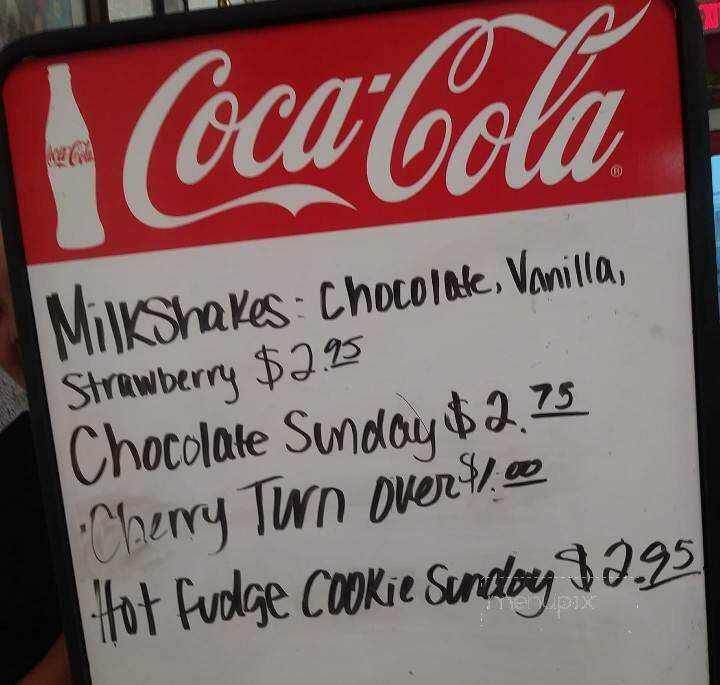 Coca-Cola
Coca-Cola®
MilkShakes: Chocolate, Vanilla,
Strawberry $2.95
Chocolate Sunday $2.75
Cherry Turn over $1.00
Hot Fudge Cookie Sunday $2.95
menupix